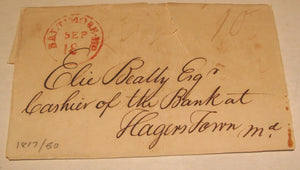 BALTIMORE MD
SEP
18
10
Elie Beatty Esqr
Cashier of the Bank at
Hagers Town Md
1817/50